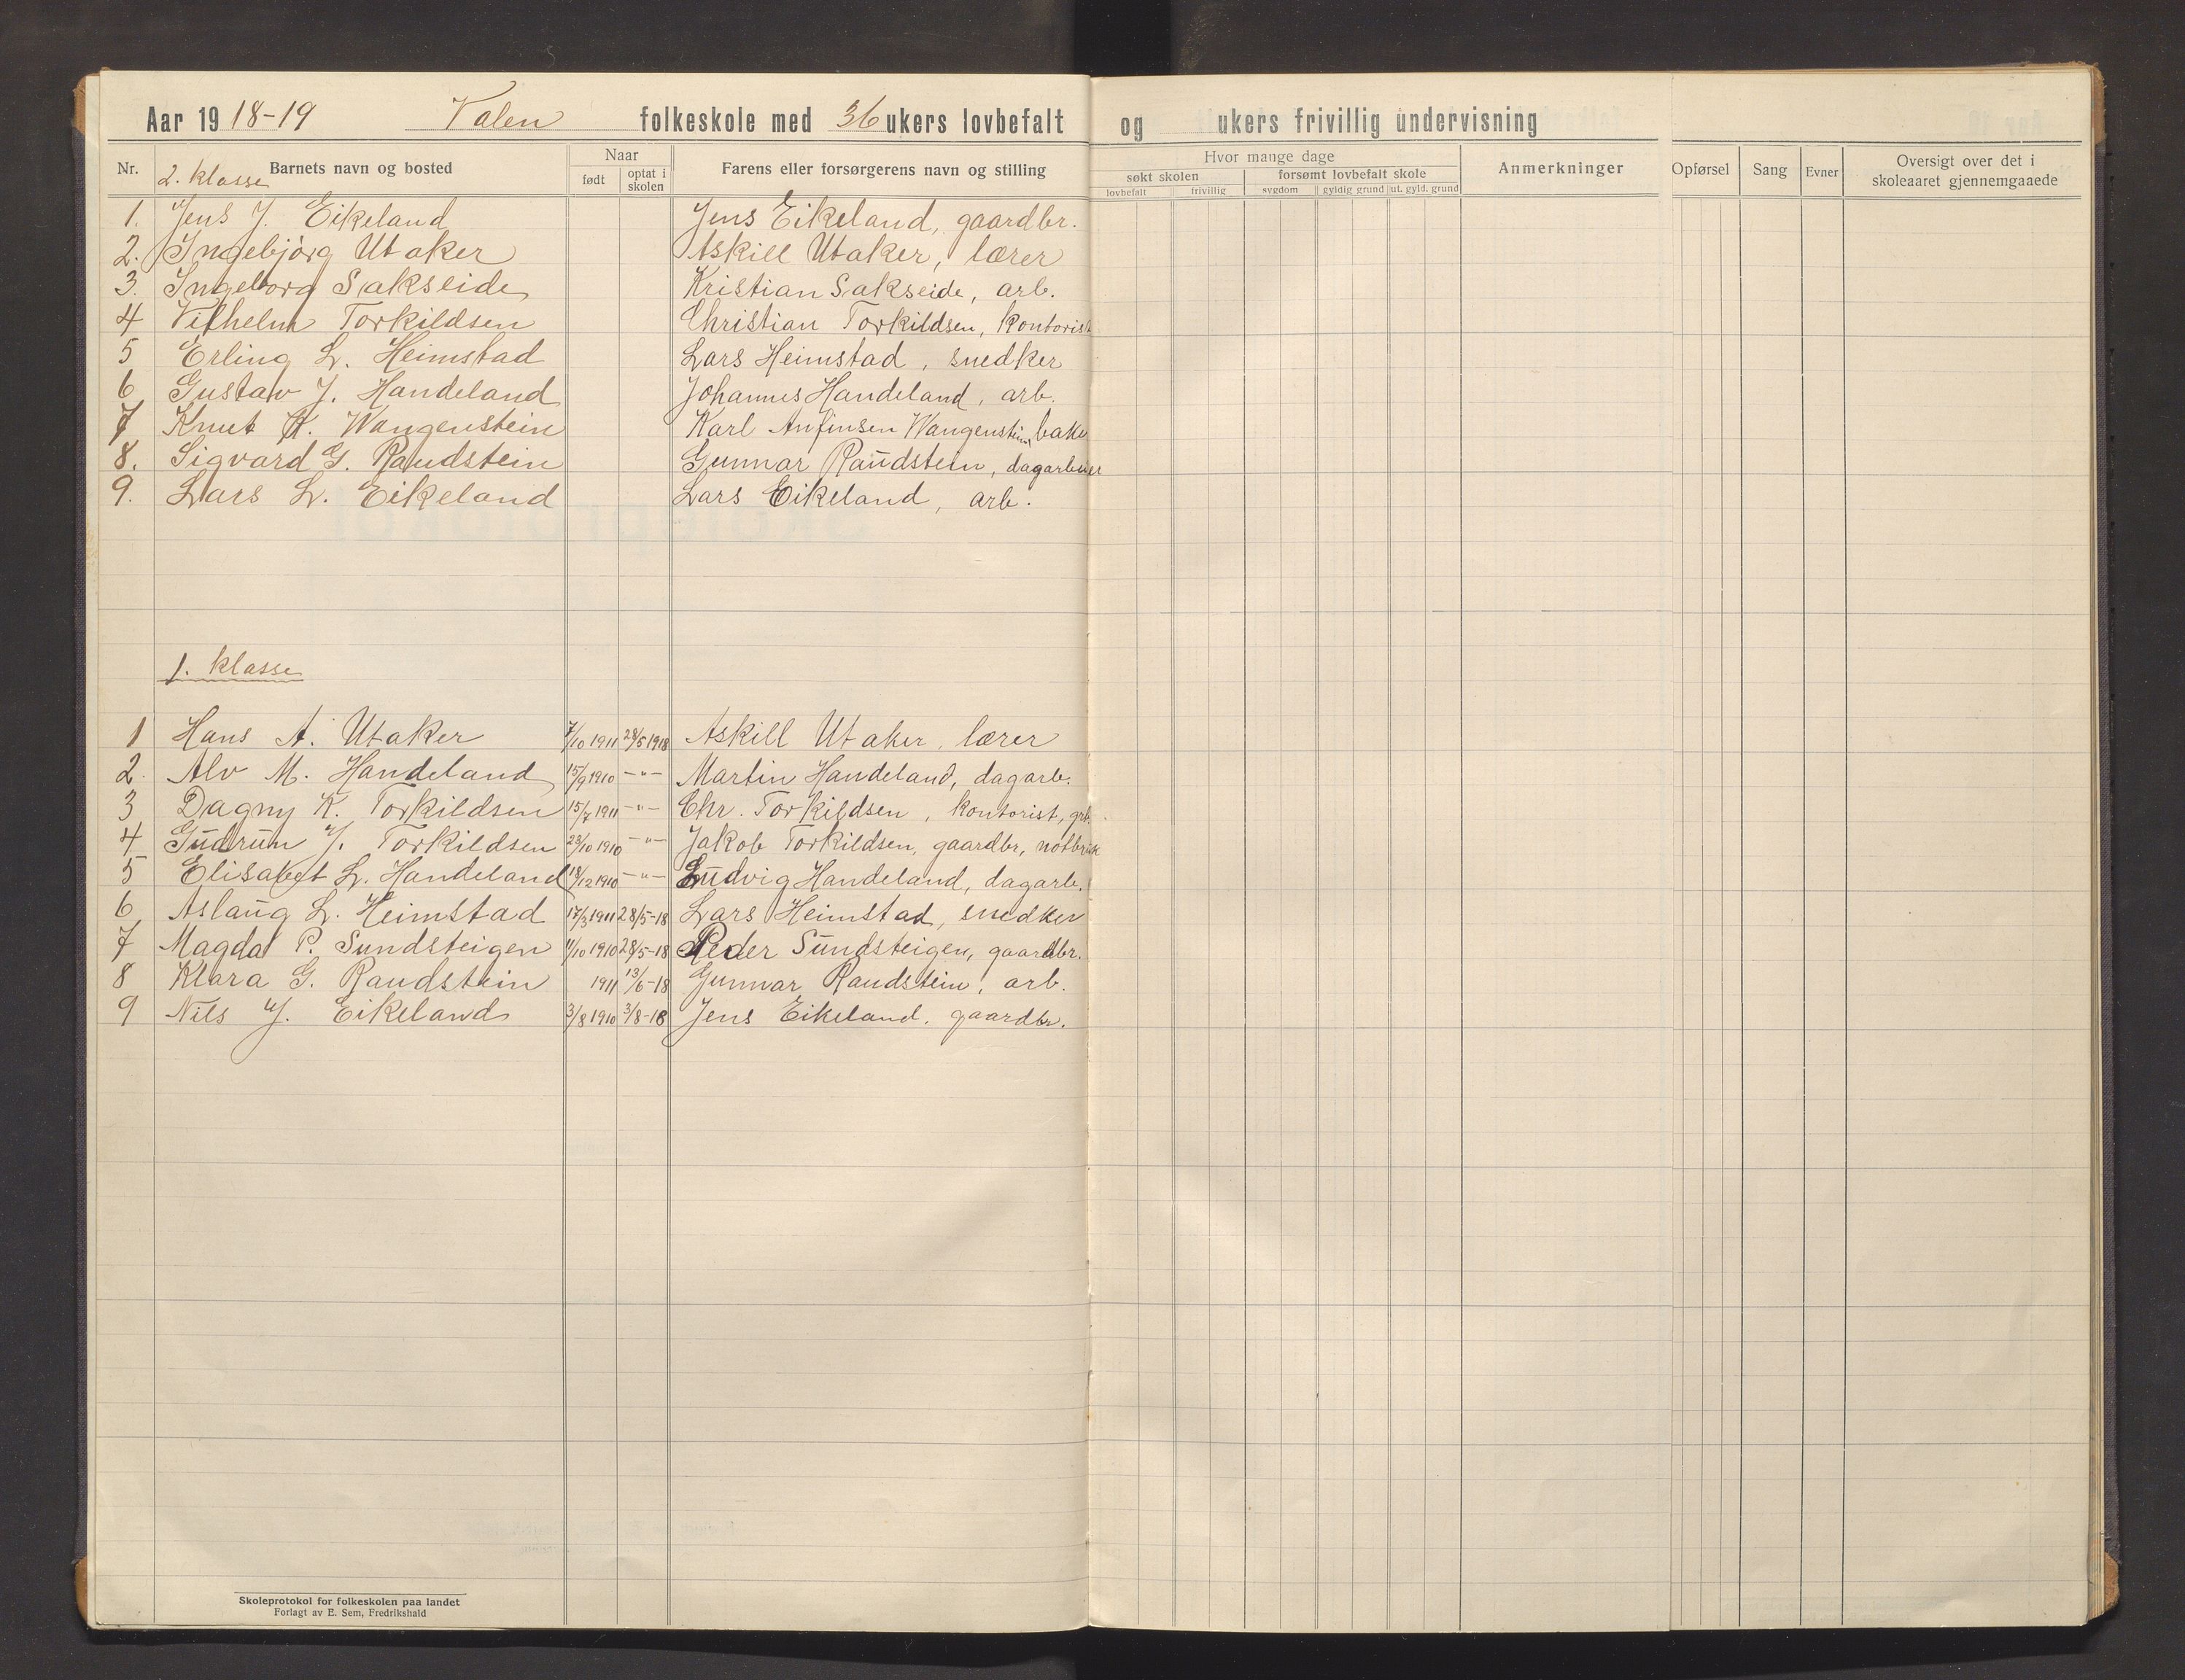 Aar 1918-19 Valen folkeskole med 36 ukers lovbefalt og ukers frivillig undervisning
Nr. Barnets navn og bosted Naar født optat i skolen Farens eller forsørgerens navn og stilling Hvor mange dage søkt skolen lovbefalt frivillig forsømt lovbefalt skole sygdom gyldig grund ut. gyld. grund Anmerkninger Opførsel Sang Evner Oversigt over det i skoleaaret gjennemgaaede
2. klasse
1. Jens J. Eikeland Jens Eikeland, gaardbr.
2. Ingebjørg Utaker Askill Utaker, lærer
3. Ingeborg Sakseide Kristian Sakseide, arb.
4 Vilhelm Torkildsen Christian Torkildsen, kontorist
5 Erling L. Heimstad Lars Heimstad, snedker
6 Gustav J. Handeland Johannes Handeland, arb.
7 Knut K. Wangenstein Karl Anfinsen Wangenstein, baker
8. Sigvard G. Raudstein Gunnar Raudstein, dagarbeider
9. Lars L. Eikeland Lars Eikeland, arb.
1. klasse
1 Hans A. Utaker 7/10 1911 28/5 1918 Askill Utaker, lærer
2. Alv M. Handeland 15/9 1910 -"- Martin Handeland, dagarb.
3 Dagny K. Torkildsen 15/7 1911 -"- Chr. Torkildsen, kontorist,
4 Gudrun J. Torkildsen 23/10 1910 -"- Jakob Torkildsen, gaardbr, notbruk
5 Elisabet L. Handeland 18/12 1910 -"- Ludvig Handeland, dagarb.
6 Aslaug L. Heimstad 17/3 1911 28/5-18 Lars Heimstad, snedker
7 Magda P. Sundsteigen 11/10 1910 28/5-18 Peder Sundsteigen, gaardbr.
8 Klara G. Raudstein 1911 13/6-18 Gunnar Raudstein, arb.
9 Nils J. Eikeland 3/8 1910 3/8-18 Jens Eikeland, gaardbr.
Skoleprotokol for folkeskolen paa landet
Forlagt av E. Sem, Fredrikshald